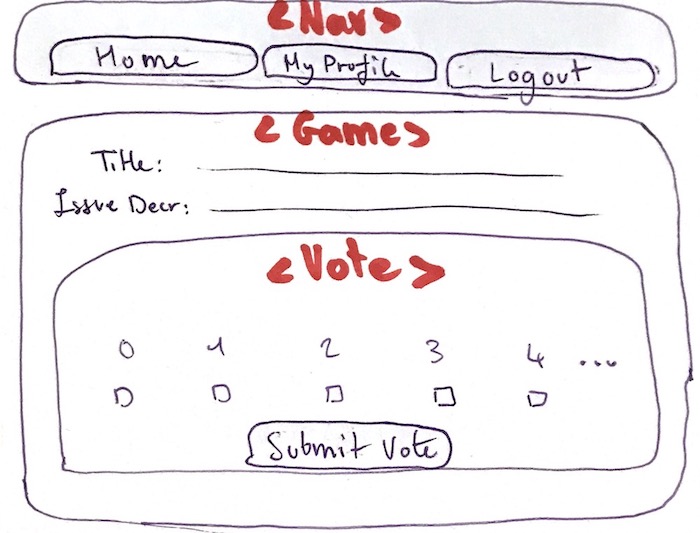 <Nav>
Home My Profile Logout
<Game>
Title:
Issue Decr:
<Vote>
0 1 2 3 4 ...
Submit Vote